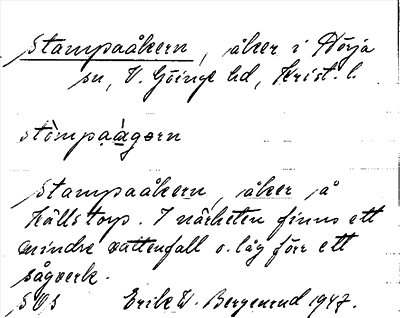 Stampaåkern, åker i Hörja
sn, V. Göinge hd, Krist. l.
stòmpaágərn
Stampaåkern, åker på
Källstorp. I närheten finns ett
mindre vattenfall o. låg förr ett
sågverk.
SOS Erik W. Bergenrud 1947.